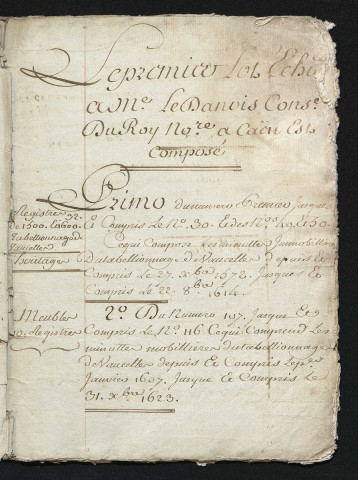 Le premier lot Echu
a Me. Le Danois Consr.
Du Roy Nore. a Caën Est
Composé
Primo du numero Premier jusque
Et Compris Le No. 30. Et des nos. 49. et 50.
Ce qui Compose Les minuttes Immobillieres
du tabellionnage de Vaucelles depuis Et
Compris Le 27. xbre 1572. Jusques Et
Compris Le 22. 8bre 1614.
Registres 32.
de 1500. a 1600.
Tabellionnage de
Vaucelles
heritages
2o. Du Numero 107. Jusque Et
Compris Le No. 116 Ce qui Comprend Les
minuttes mobillieres du tabellionnage
de Vaucelles depuis Et Compris Le per.
Janvier 1607. Jusque Et Compris Le
31. xbre 1623.
Meubles
10. Registres